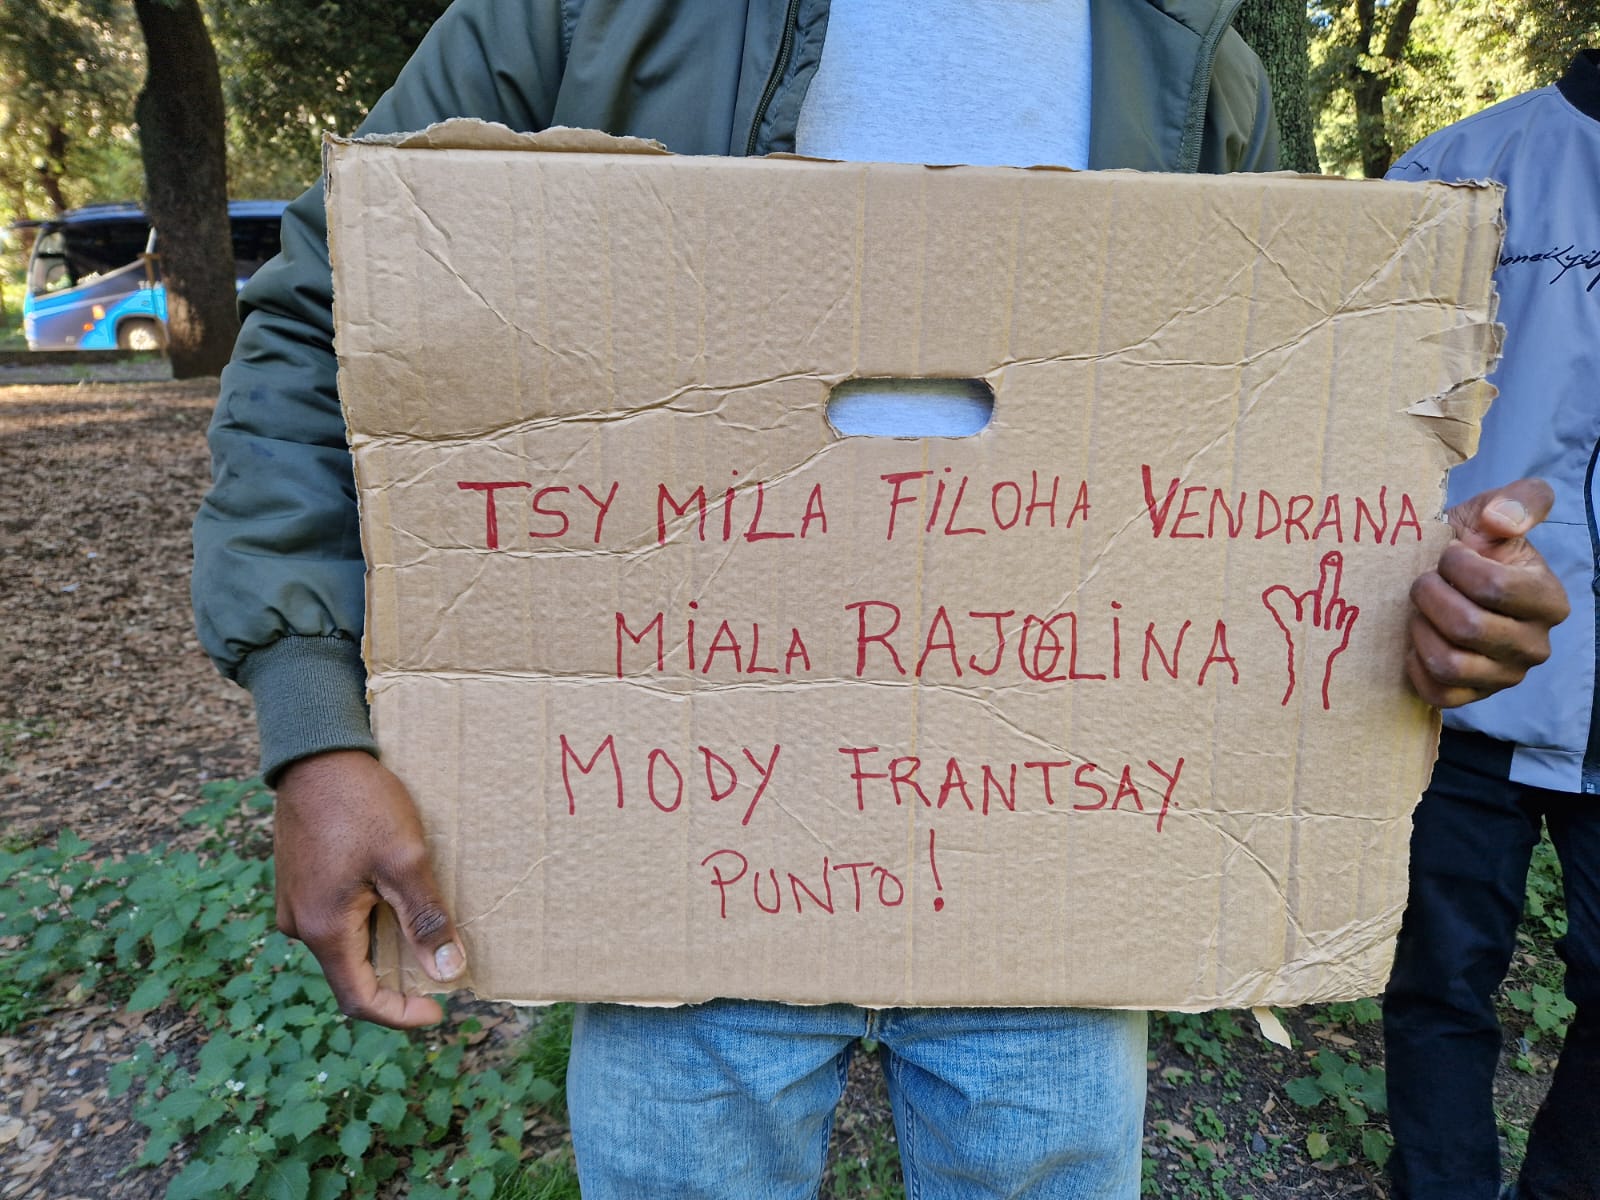 TSY MiLA FiLOHA VENDRANA
MiALA RAJOELiNA
MODY FRANTSAY
PUNTO!